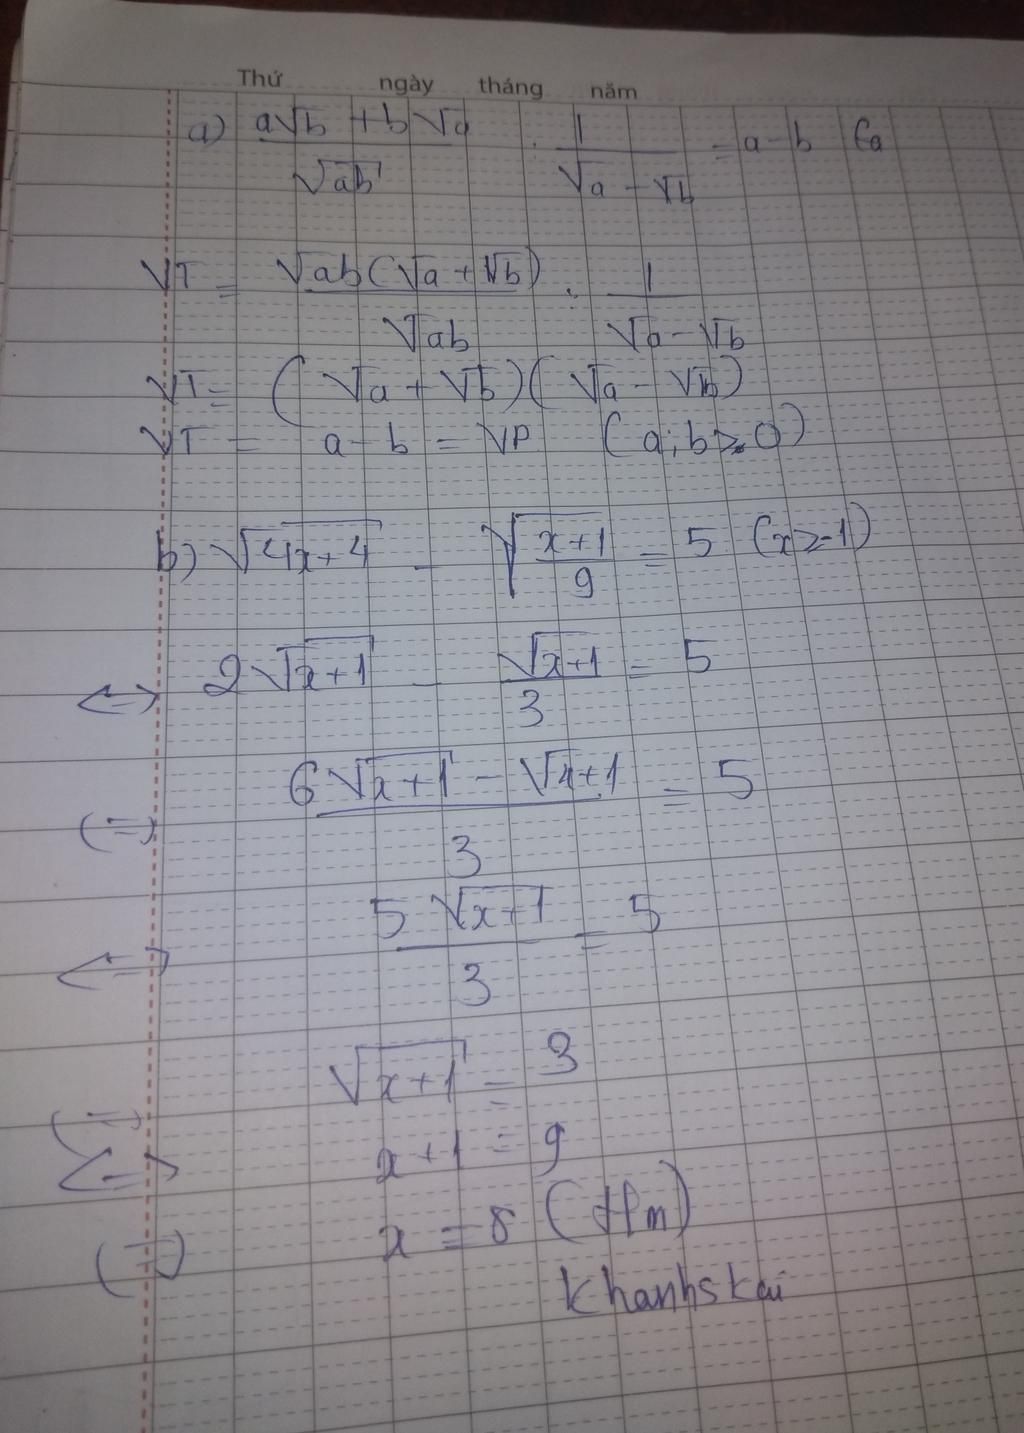 Thứ ngày tháng năm
a) a√b + b√a / √ab . 1 / √a - √b = a - b (a
VT = √ab(√a + √b) / √ab . 1 / √a - √b
VT = (√a + √b)(√a - √b)
VT = a - b = VP (a; b ≥ 0)
b) √4x+4 - √x+1/9 = 5 (x ≥ -1)
<=> 2√x+1 - √x+1 / 3 = 5
(=) 6√x+1 - √x+1 / 3 = 5
<=> 5√x+1 / 3 = 5
(=) √x+1 = 3
<=> x+1 = 9
(=) x = 8 (t/m)
Khanhskai